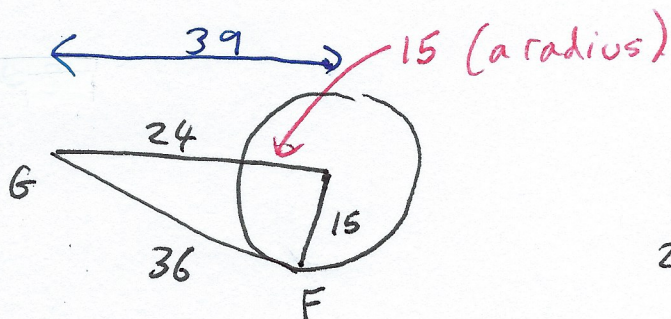 39
15 (a radius)
24
G
15
36
F
2